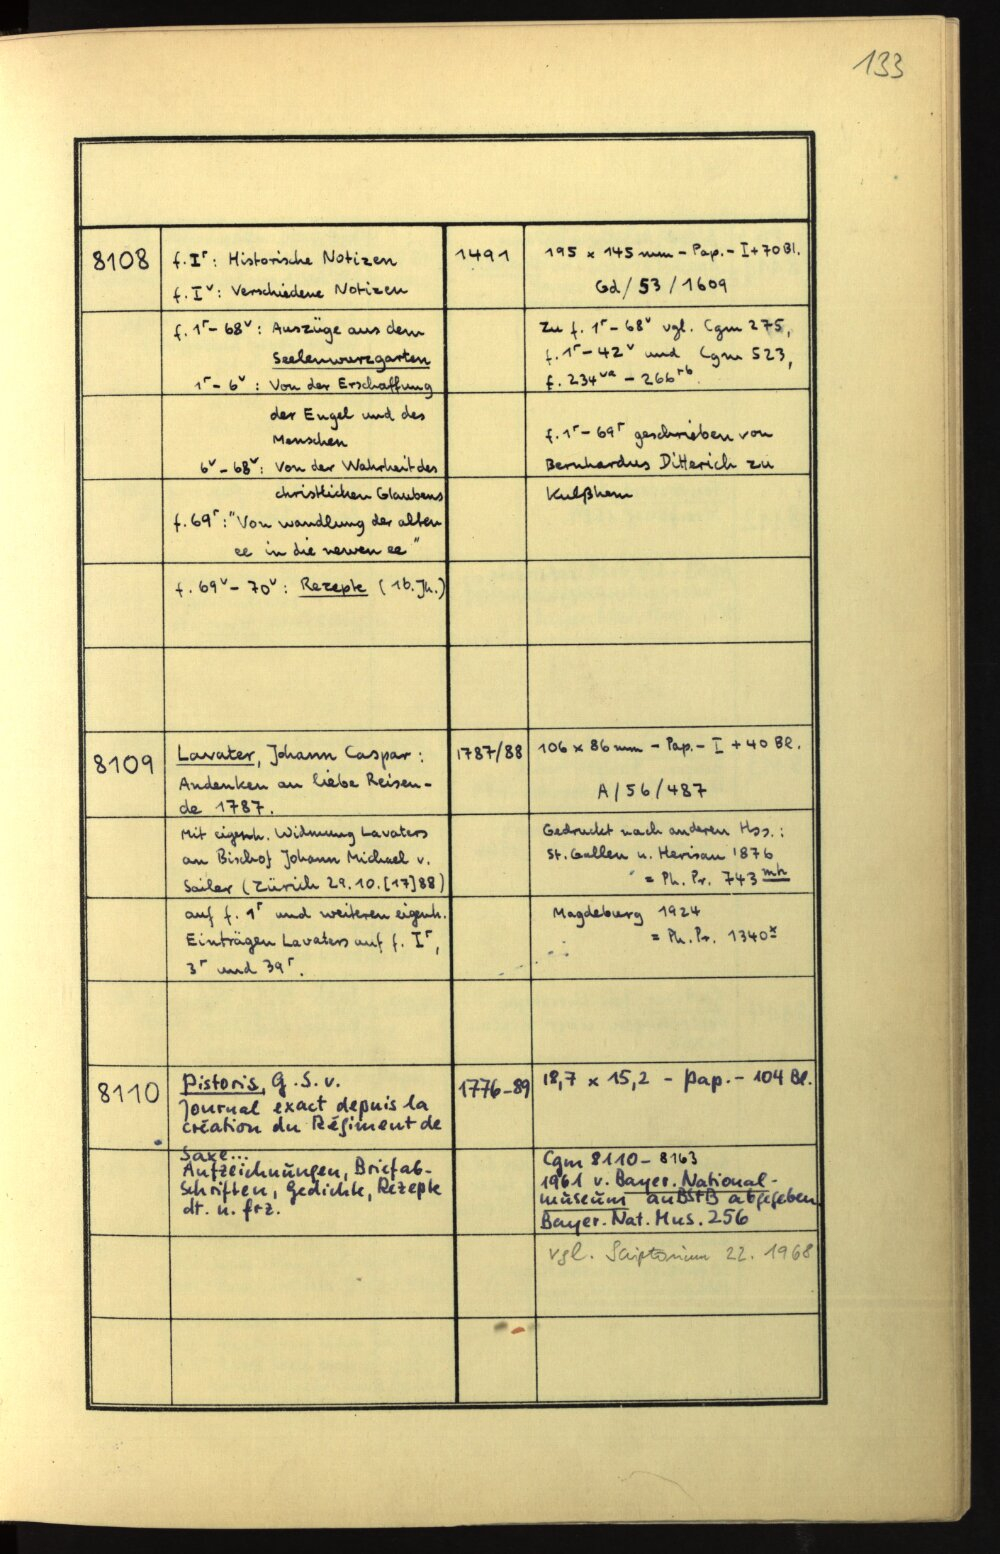 133
8108
f. Iʳ: Historische Notizen
f. Iᵛ: Verschiedene Notizen
f. 1ʳ – 68ᵛ: Auszüge aus dem
Seelenwurzgarten
1ʳ – 6ᵛ: Von der Erschaffung
der Engel und des
Menschen
6ᵛ – 68ᵛ: Von der Wahrheit des
christlichen Glaubens
f. 69ʳ: "Von wandlung der alten
ee in die newen ee"
f. 69ᵛ – 70ᵛ: Rezepte (16. Jh.)
1491
195 x 145 mm – Pap. – I + 70 Bl.
Gd / 53 / 1609
Zu f. 1ʳ – 68ᵛ vgl. Cgm 275,
f. 1ʳ – 42ᵛ und Cgm 523,
f. 234ᵛᵃ – 266ʳᵇ.
f. 1ʳ – 69ʳ geschrieben von
Bernhardus Ditterich zu
Kulßhem
8109
Lavater, Johann Caspar:
Andenken an liebe Reisen-
de 1787.
Mit eigenh. Widmung Lavaters
an Bischof Johann Michael v.
Sailer (Zürich 29.10.[17]88)
auf f. 1ʳ und weiteren eigenh.
Einträgen Lavaters auf f. Iʳ,
3ʳ und 39ʳ.
1787/88
106 x 86 mm – Pap. – I + 40 Bl.
A / 56 / 487
Gedruckt nach anderen Hss.:
St. Gallen u. Herisau 1876
= Ph. Pr. 743 ᵐʰ
Magdeburg 1924
= Ph. Pr. 1340ˣ
8110
Pistoris, G. S. v.
Journal exact depuis la
création du Régiment de
Saxe...
Aufzeichnungen, Briefab-
schriften, Gedichte, Rezepte
dt. u. frz.
1776–89
18,7 x 15,2 – Pap. – 104 Bl.
Cgm 8110 – 8163
1961 v. Bayer. National-
museum an BStB abgegeben
Bayer. Nat. Mus. 256
vgl. Scriptorium 22. 1968